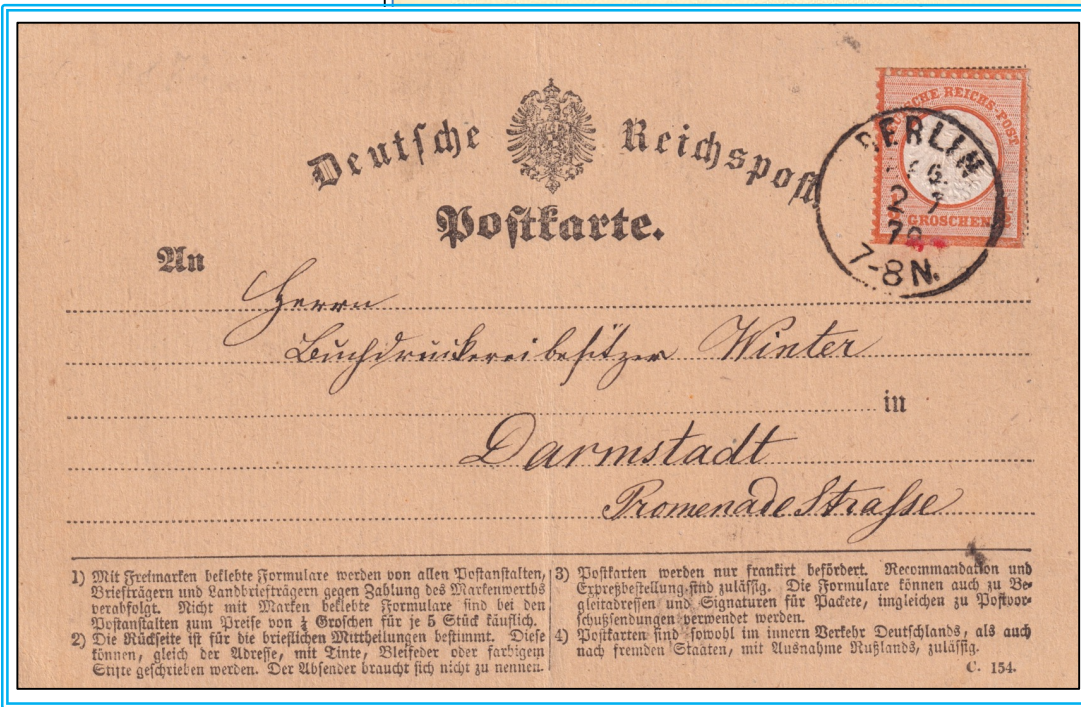 Deutsche Reichspost.
DEUTSCHE REICHS-POST
GROSCHEN
BERLIN
7-8 N.
Postkarte.
An
Herrn
Buchdruckereibesitzer Winter
in
Darmstadt
Promenade Strasse
1) Mit Freimarken beklebte Formulare werden von allen Postanstalten,
Briefträgern und Landbriefträgern gegen Zahlung des Markenwerths
verabfolgt. Nicht mit Marken beklebte Formulare sind bei den
Postanstalten zum Preise von ¼ Groschen für je 5 Stück käuflich.
2) Die Rückseite ist für die brieflichen Mittheilungen bestimmt. Diese
können, gleich der Adresse, mit Tinte, Bleifeder oder farbigem
Stifte geschrieben werden. Der Absender braucht sich nicht zu nennen.
3) Postkarten werden nur frankirt befördert. Recommandation und
Expreßbestellung sind zulässig. Die Formulare können auch zu Be-
gleitadressen und Signaturen für Packete, imgleichen zu Postvor-
schußsendungen verwendet werden.
4) Postkarten sind sowohl im innern Verkehr Deutschlands, als auch
nach fremden Staaten, mit Ausnahme Rußlands, zulässig.
C. 154.